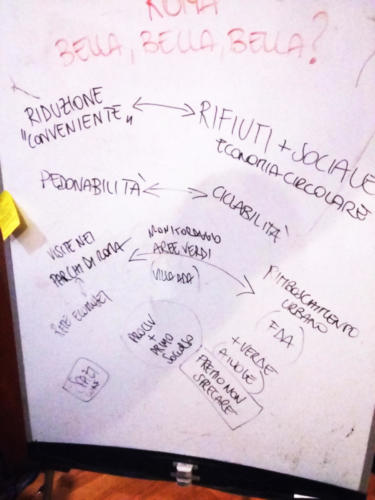 ROMA
BELLA, BELLA, BELLA?
RIDUZIONE
"CONVENIENTE"
RIFIUTI + SOCIALE
ECONOMIA CIRCOLARE
PEDONABILITA'
CICLABILITA'
VISITE NEI
PARCHI DI ROMA
MONITORAGGIO
AREE VERDI
VILLA ADA
RIMBOSCHIMENTO
URBANO
FDA
PROCIV
+
PRIMO
SOCCORSO
+ VERDE
AIUOLE
PREMIO NON
SPRECARE